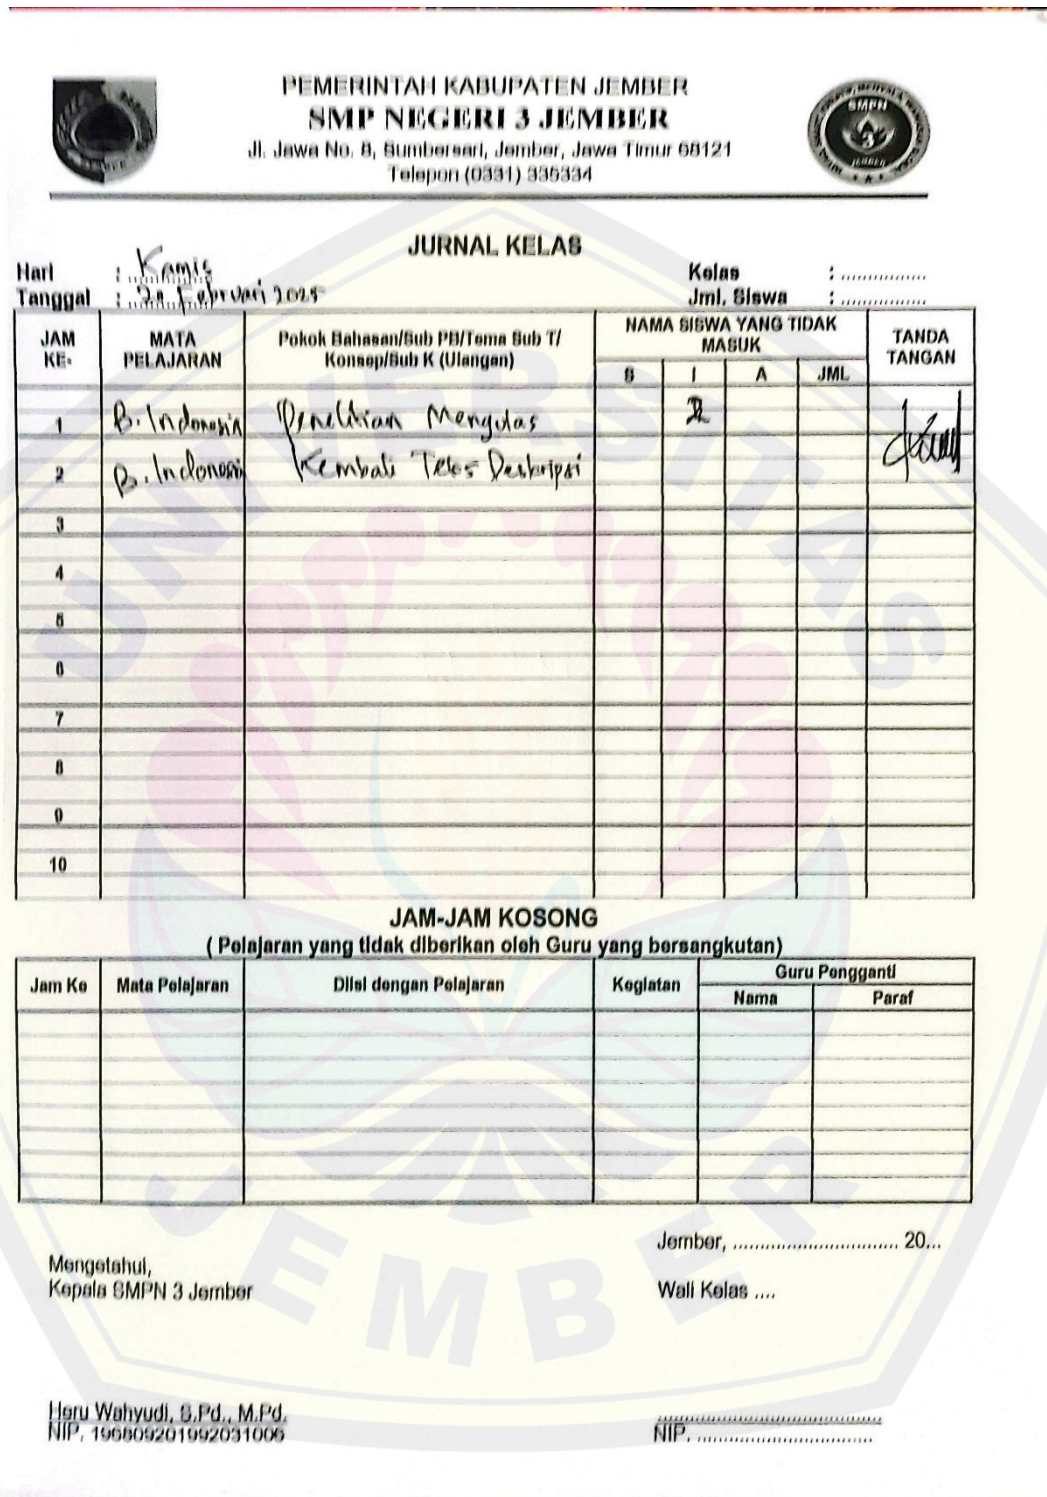 PEMERINTAH KABUPATEN JEMBER
SMP NEGERI 3 JEMBER
Jl. Jawa No. 8, Sumbersari, Jember, Jawa Timur 68121
Telepon (0331) 335334
SMPN
3
JEMBER
JURNAL KELAS
Hari : Kamis
Kelas : ................
Tanggal : 20 Februari 2025
Jml. Siswa : ................
JAM KE-
MATA PELAJARAN
Pokok Bahasan/Sub PB/Tema Sub T/
Konsep/Sub K (Ulangan)
NAMA SISWA YANG TIDAK MASUK
S I A JML
TANDA TANGAN
1 B. Indonesia Penelitian Mengulas
2 B. Indonesia Kembali Teks Deskripsi
3
4
5
6
7
8
9
10
JAM-JAM KOSONG
( Pelajaran yang tidak diberikan oleh Guru yang bersangkutan)
Jam Ke Mata Pelajaran Diisi dengan Pelajaran Kegiatan Guru Pengganti
Nama Paraf
Jember, .............................. 20...
Mengetahui,
Kepala SMPN 3 Jember
Wali Kelas ....
Heru Wahyudi, S.Pd., M.Pd.
NIP. 196809201992031006
NIP. ................................
UNIVERSITAS
JEMBER